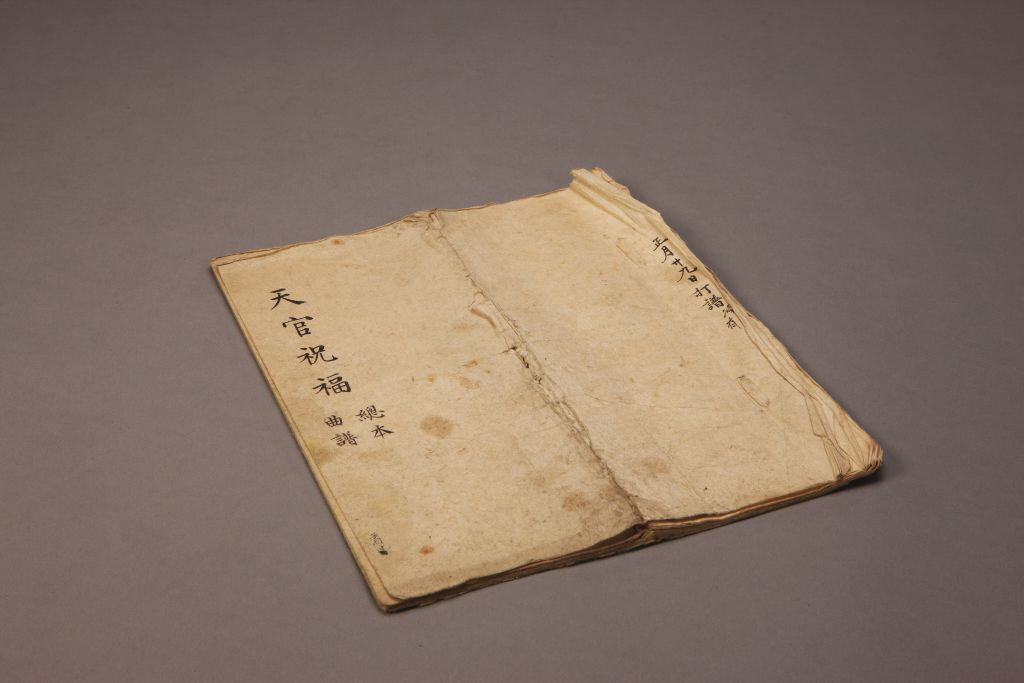 正月廿九日打譜
天官祝福
總本
曲譜